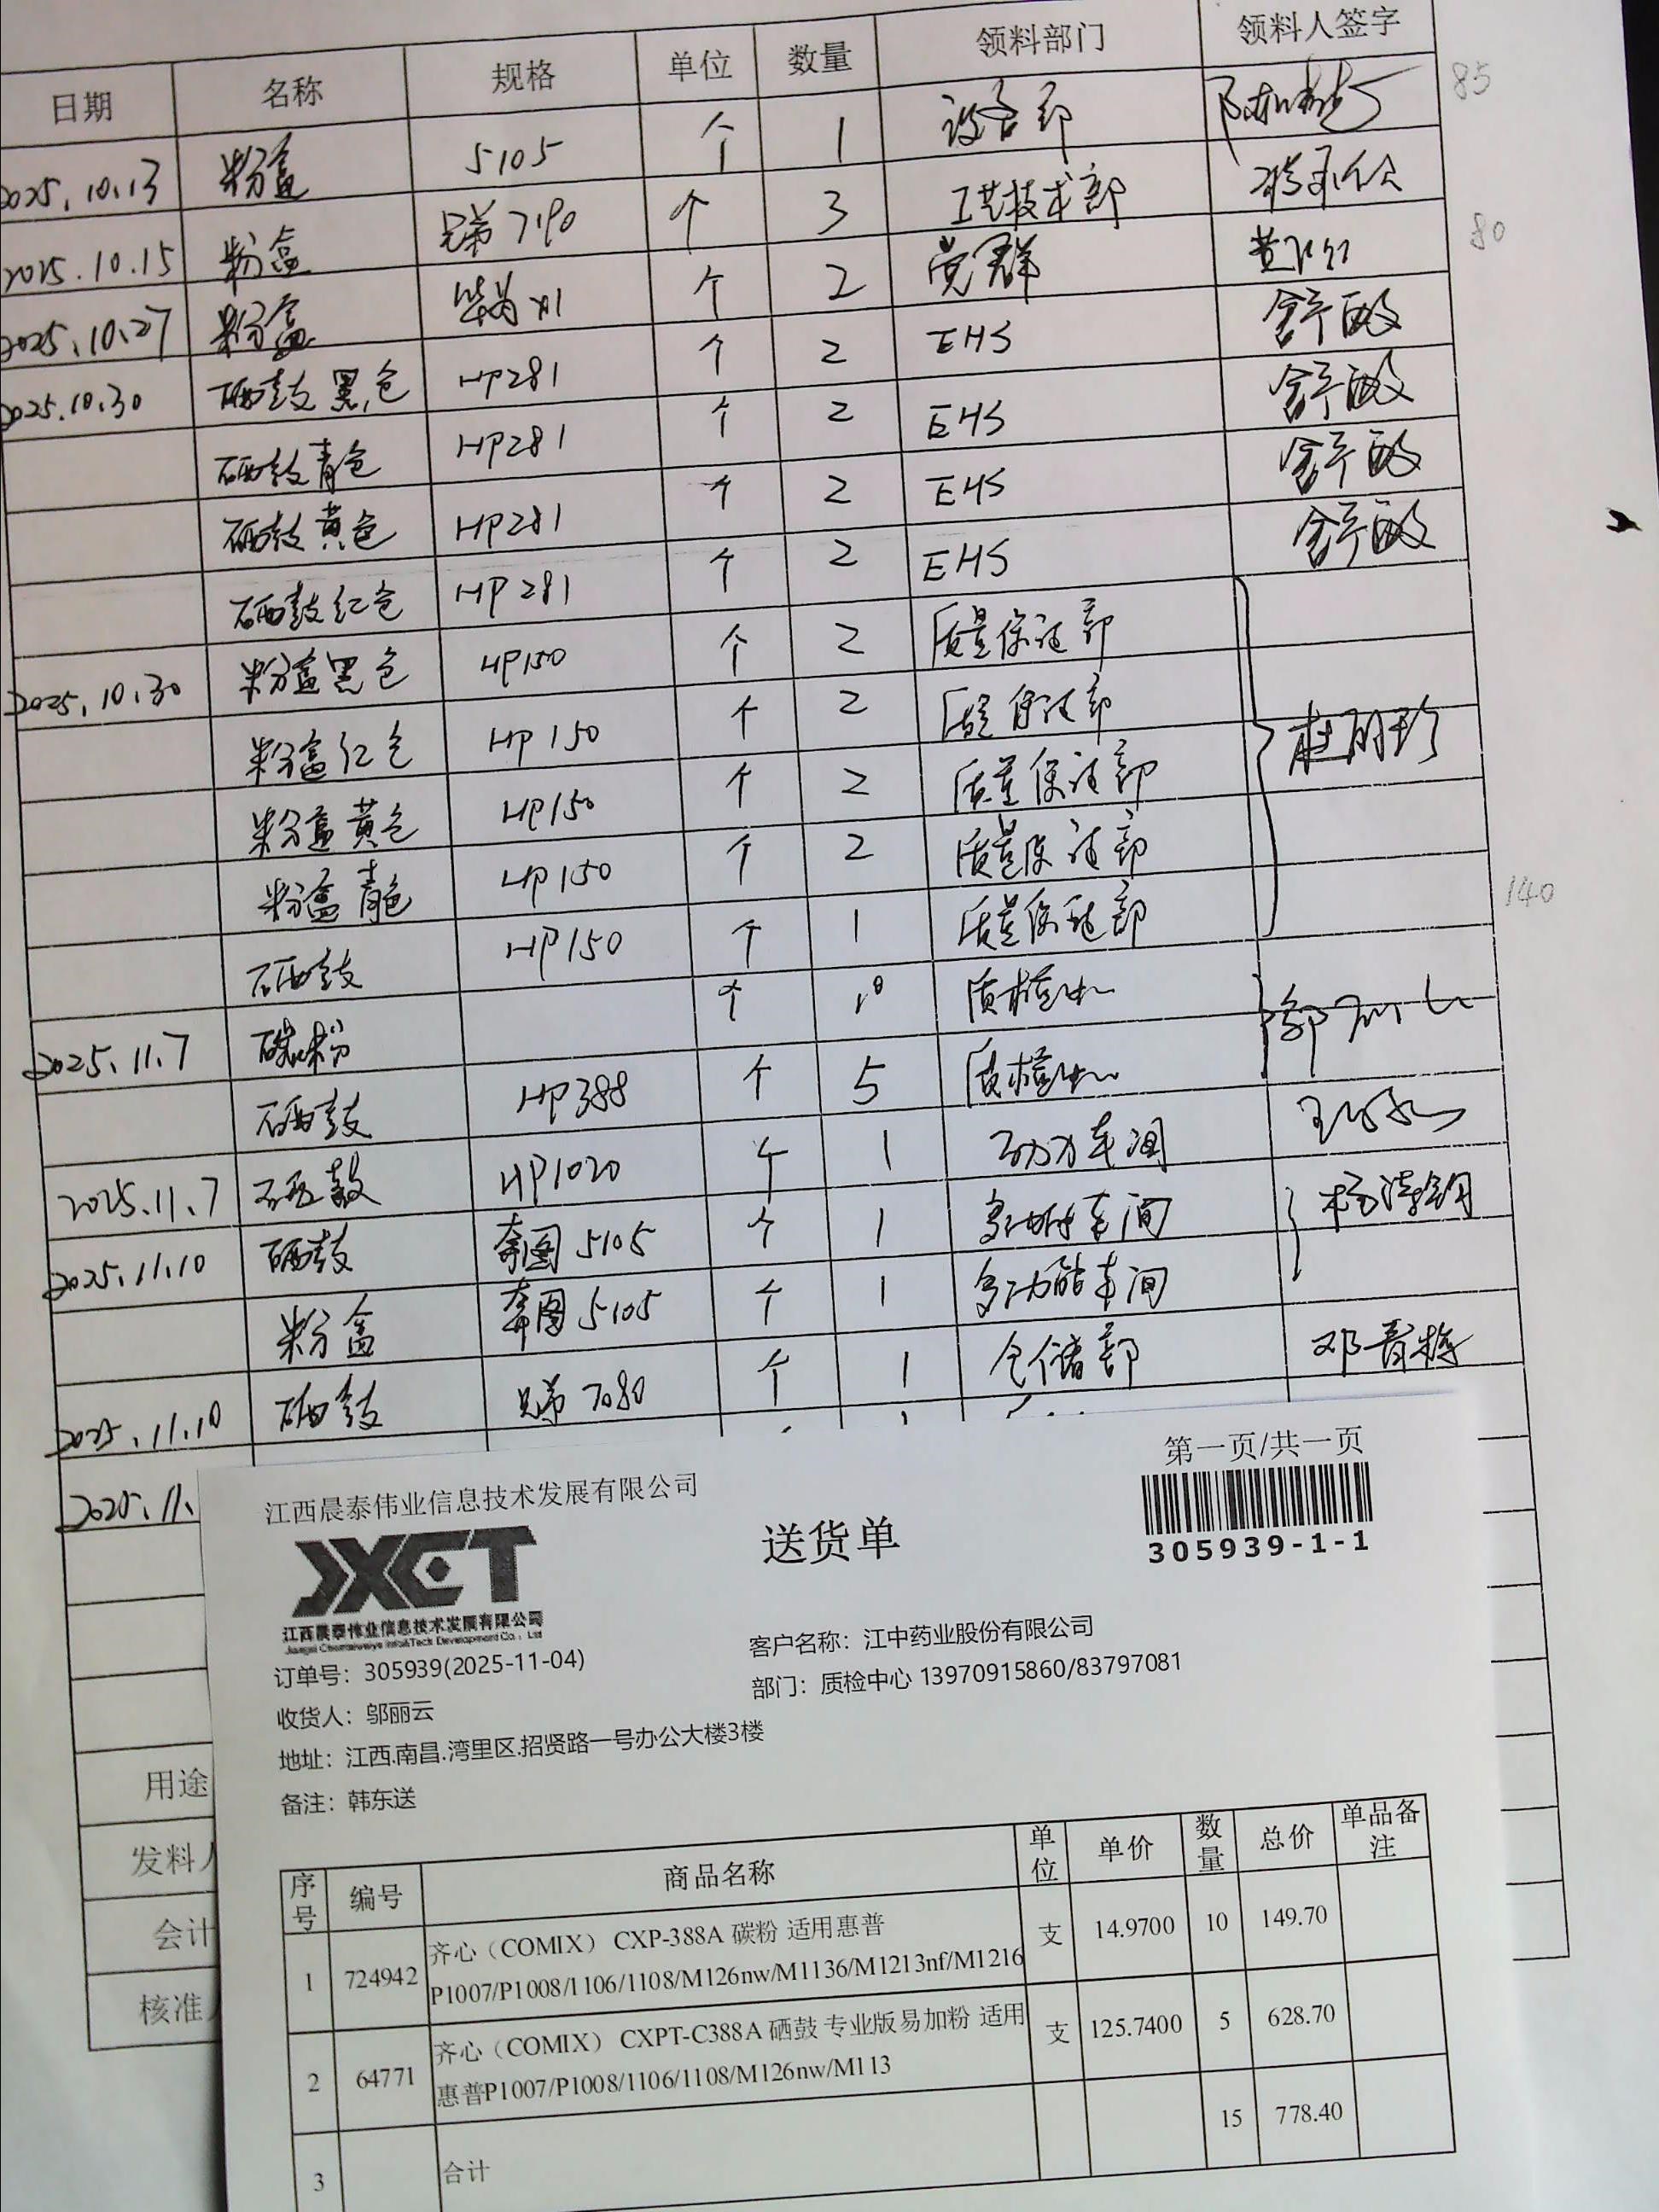 日期 名称 规格 单位 数量 领料部门 领料人签字
2025.10.13 粉盒 5105 个 1 设备部
85
2025.10.15 粉盒 兄弟7190 个 3 工艺技术部
2025.10.27 粉盒 个 2 党群
80
2025.10.30 硒鼓黑色 HP281 个 2 EHS 舒敏
硒鼓青色 HP281 个 2 EHS 舒敏
硒鼓黄色 HP281 个 2 EHS 舒敏
硒鼓红色 HP281 个 2 EHS 舒敏
2025.10.30 粉盒黑色 HP150 个 2 质量保证部
粉盒红色 HP150 个 2 质量保证部 杜丽珍
粉盒黄色 HP150 个 2 质量保证部
粉盒青色 HP150 个 2 质量保证部
硒鼓 HP150 个 1 质量保证部
140
2025.11.7 碳粉 个 10 质检中心
硒鼓 HP388 个 5 质检中心
2025.11.7 硒鼓 HP1020 个 1 动力车间
2025.11.10 硒鼓 奔图5105 个 1 多功能车间
粉盒 奔图5105 个 1 多功能车间
2025.11.10 硒鼓 兄弟7080 个 1 仓储部 邓青梅
2025.11.
用途
发料人
会计
核准人
第一页/共一页
江西晨泰伟业信息技术发展有限公司
送货单
305939-1-1
JXCT
江西晨泰伟业信息技术发展有限公司
Jiangxi Chentaiweiye Info&Tech Development Co., Ltd
订单号：305939(2025-11-04) 客户名称：江中药业股份有限公司
收货人：邬丽云 部门：质检中心 13970915860/83797081
地址：江西.南昌.湾里区.招贤路一号办公大楼3楼
备注：韩东送
序号 编号 商品名称 单位 单价 数量 总价 单品备注
1 724942 齐心（COMIX） CXP-388A 碳粉 适用惠普 支 14.9700 10 149.70
P1007/P1008/1106/1108/M126nw/M1136/M1213nf/M1216
2 64771 齐心（COMIX） CXPT-C388A 硒鼓 专业版易加粉 适用 支 125.7400 5 628.70
惠普P1007/P1008/1106/1108/M126nw/M113
3 合计 15 778.40